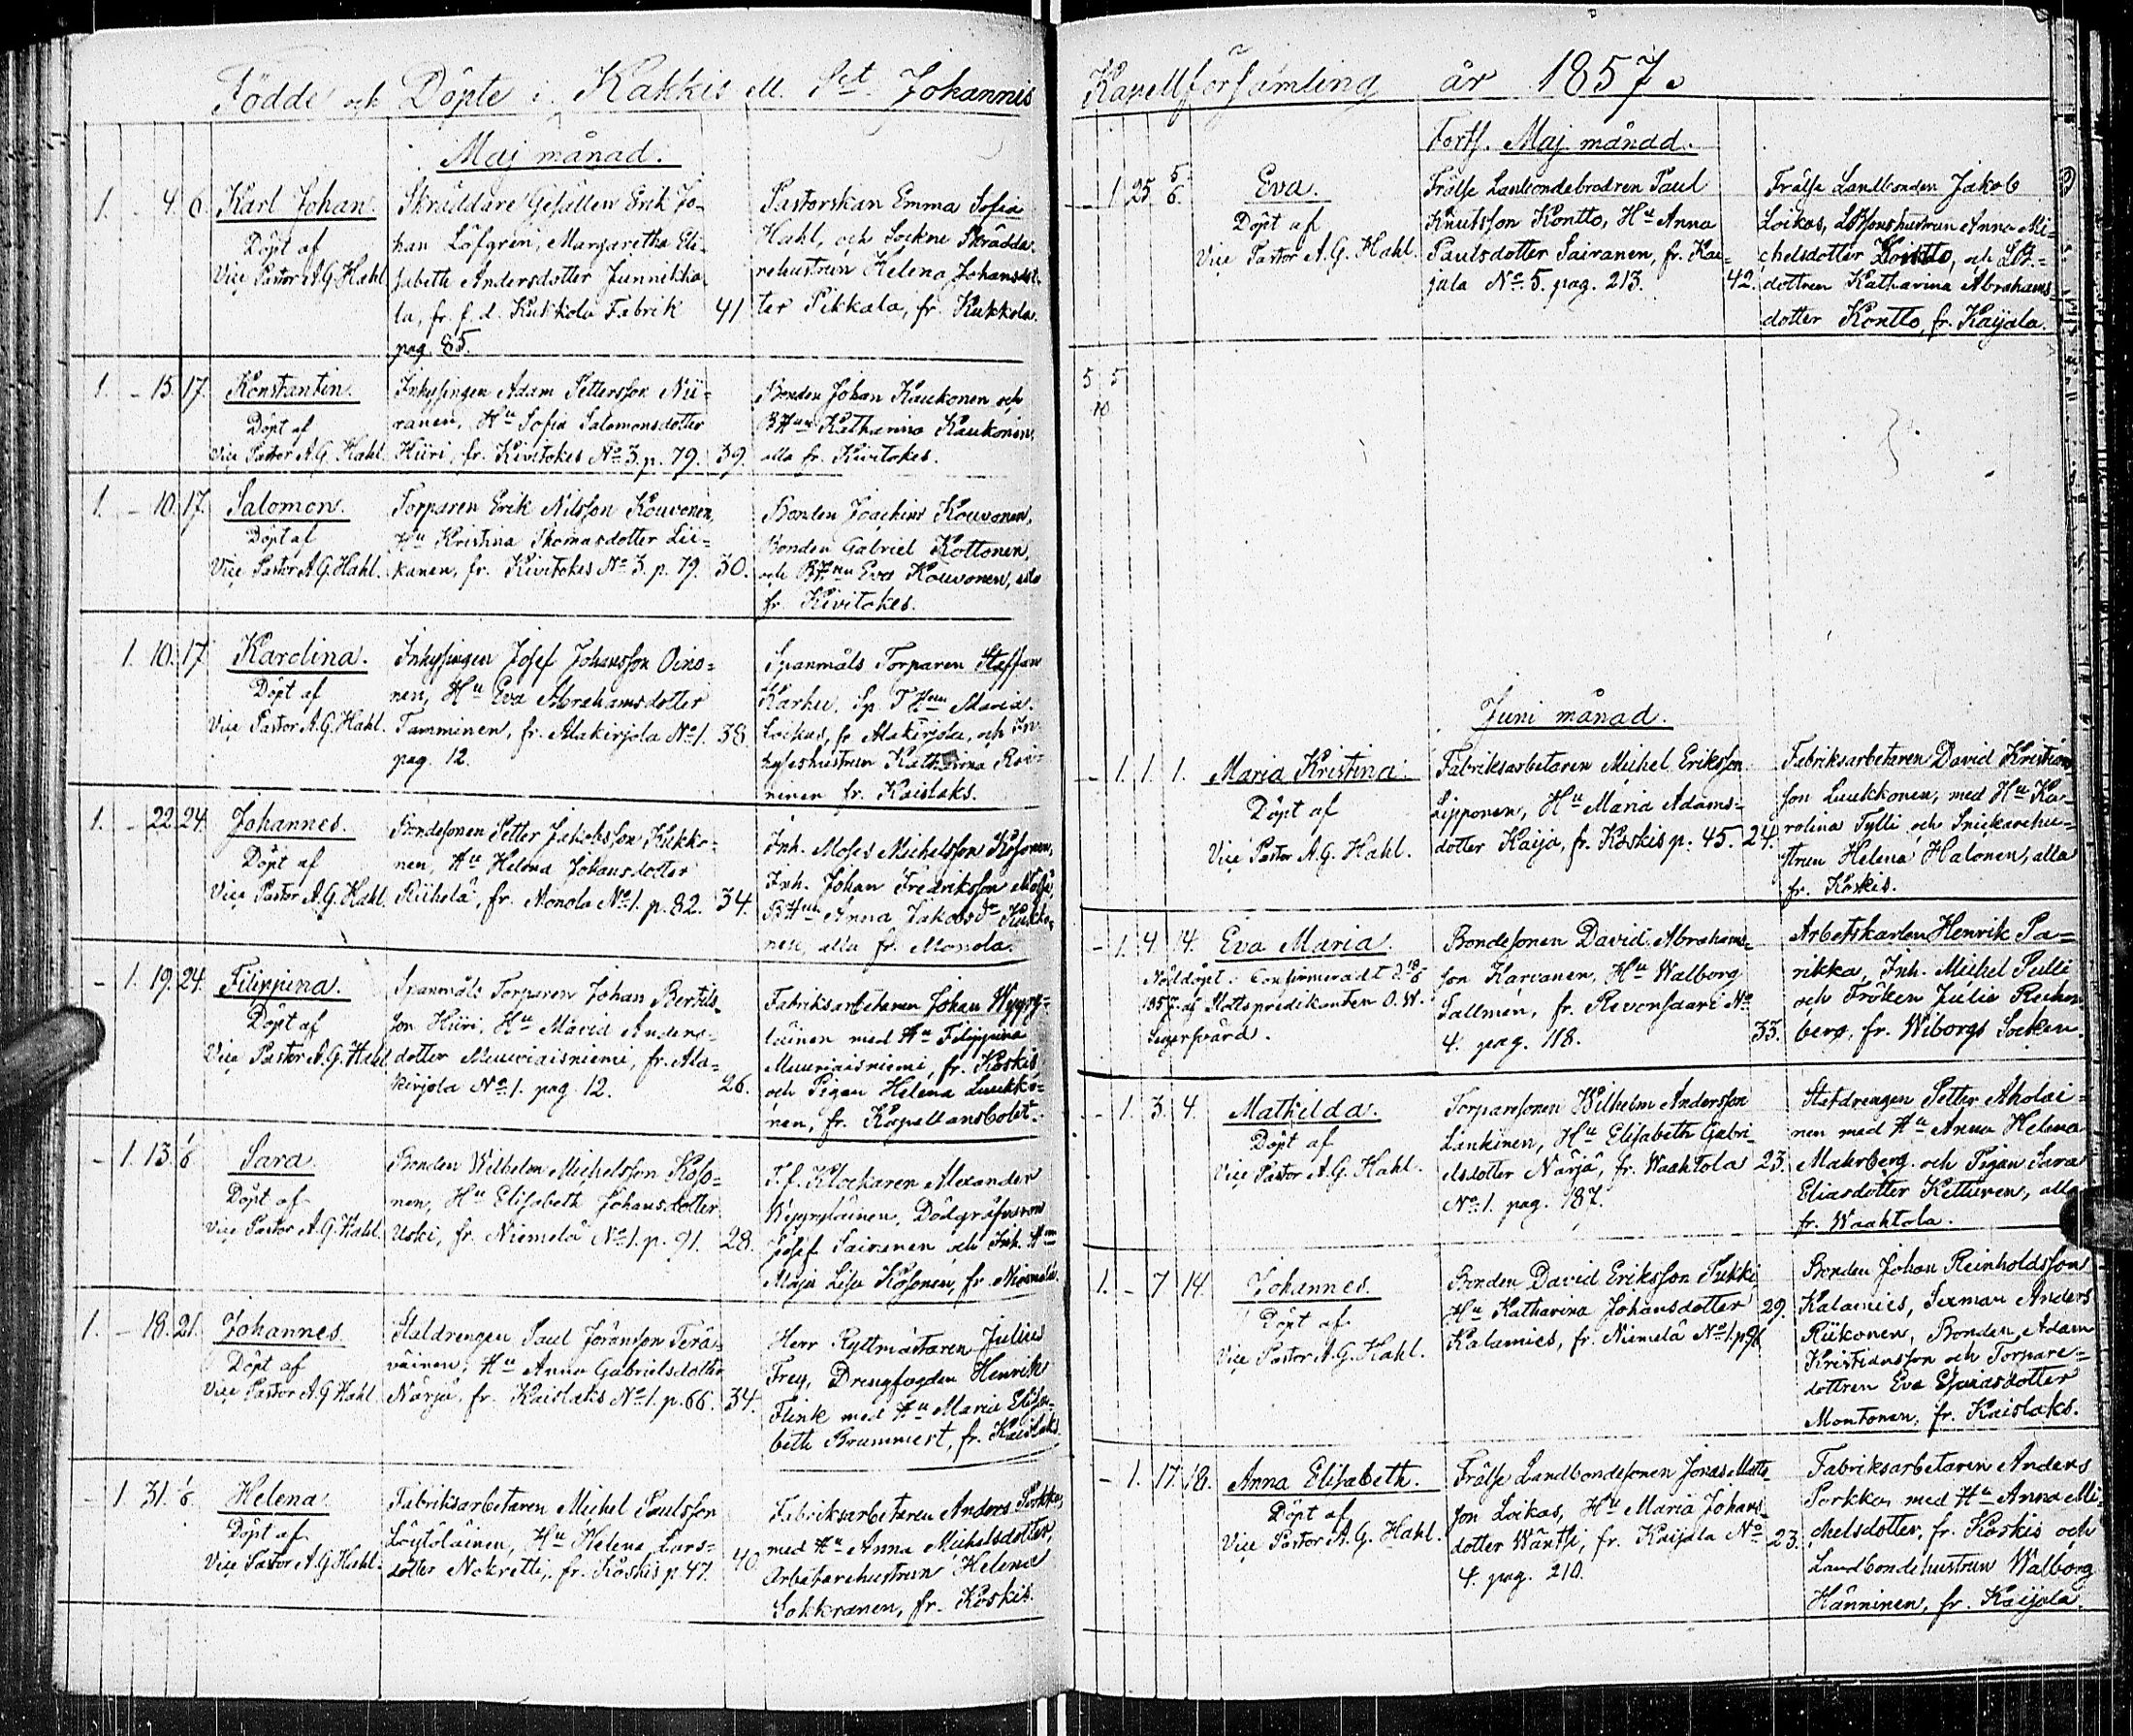 Födde och Döpte i Kakkis ell. Sct. Johannis
Maj månad.
1. - 4. 6. Karl Johan. Skräddare Gesällen Erik Jo- Pastorskan Emma Sofia
Döpt af han Löfgren, Margaretha Eli- Hahl, och Sockne Skrädda-
Vice Pastor A.G. Hahl sabeth Andersdotter Junnikka- rehustrun Helena Johansdot-
la, fr. f. d. Kukkola Fabrik 41 ter Pikkala, fr. Kukkola.
pag. 85.
1. - 15. 17. Konstantin. Inhysingen Adam Pettersson Nii- Bonden Johan Kaukonen och
Döpt af ranen, Hu Sofia Salomonsdotter BHun Katharina Kaukonen,
Vice Pastor A.G. Hahl. Hiiri, fr. Kivitokes No 3. p. 79. 39. alla fr. Kivitokes.
1. - 10. 17. Salomon. Torparen Erik Nilsson Kouvonen, Bonden Joachim Kouvonen,
Döpt af Hu Kristina Thomasdotter Lii- Bonden Gabriel Kottonen,
Vice Pastor A.G. Hahl. kanen, fr. Kivitokes No 3. p. 79. 30. och BHun Eva Kouvonen, alla
fr. Kivitokes.
1. 10. 17. Karolina. Inhysingen Josef Johansson Oino- Spanmåls Torparen Staffan
Döpt af nen, Hu Eva Abrahamsdotter Karhu, Sp. T Hun Maria
Vice Pastor A.G. Hahl. Tamminen, fr. Alakirjola No 1. 38. Loikas, fr Alakirjola, och In-
pag. 12. hyseshustrun Katharina
ninen fr. Kaislaks.
1. - 22. 24. Johannes. Bondesonen Petter Jakobsson Kukko- Inh. Moses Michelsson Kosonen,
Döpt af nen, Hu Helena Johansdotter Inh. Johan Fredriksson
Vice Pastor A.G. Hahl. Riihelä, fr. Monola No 1. p. 82. 34. BHun Anna Jakobsdr Kukko-
nen, alla fr. Monola.
- 1. 19. 24. Filippina. Spanmåls Torparen Johan Bertils- Fabriksarbetaren Johan Wepsä-
Döpt af son Hiiri, Hu Maria Anders- läinen med Hu Filippina
Vice Pastor A.G. Hahl dotter Muuriaisniemi, fr. Ala- Muuriaisniemi, fr. Koskis
kirjola No 1. pag. 12. 26. och Pigan Helena Luukko-
nen, fr. Kapellansbolet.
- 1. 13. 1/6 Sara. Bonden Wilhelm Michelsson Koso- T.f. Klockaren Alexander
Döpt af nen, Hu Elisabeth Johansdotter Wepsäläinen, Dödgräfvaren
Vice Pastor A.G. Hahl. Uski, fr. Niemelä No 1. p. 91. 28. Josef Sairanen och Inh. Hun
Maja Lisa Kosonen, fr. Niemelä.
1. - 18. 21. Johannes. Staldrengen Paul Jöransson Terä- Herr Ryttmästaren Julius
Döpt af väinen, Hu Anna Gabrielsdotter Frey, Drengfogden Henrik
Vice Pastor A.G. Hahl Närjä, fr. Kaislaks No 1. p. 66. 34. Flink med Hu Maria Elisa-
beth Brummert, fr. Kaislaks.
- 1. 31. 1/6. Helena. Fabriksarbetaren Michel Paulsson Fabriksarbetaren Anders Porkka,
Döpt af Löytöläinen, Hu Helena Lars- med Hu Anna Michelsdotter,
Vice Pastor A.G. Hahl. dotter Nokretti, fr. Koskis p. 47. 40. Arbetarehustrun Helena
Sokkranen, fr. Koskis.
Kapellförsamling år 1857.
Forts. Maj månad.
- 1. 25. 5/6. Eva. Frälse Landbondebrodren Paul Frälse Landbonden Jakob
Döpt af Knutsson Kontto, Hu Anna Loikas, LBsonshustrun Anna Mi-
Vice Pastor A.G. Hahl. Paulsdotter Sairanen, fr. Kai- chelsdotter Kontto, och LB.-
jala No. 5. pag. 213. 42. dottren Katharina Abrahams-
dotter Kontto, fr. Kaijala.
5. 5
10
Juni månad.
- 1. 1. 1. Maria Kristina. Fabriksarbetaren Michel Eriksson Fabriksarbetaren David Kristians-
Döpt af Lipponen, Hu Maria Adams- son Luukkonen, med Hu Ka-
Vice Pastor A.G. Hahl. dotter Kaija, fr. Koskis p. 45. 24. rolina Tylli och Snickarehu-
strun Helena Halonen, alla
fr. Koskis.
- 1. 4. 14. Eva Maria. Bondesonen David Abrahams- Arbetskarlen Henrik Pa-
Nöddöpt. Confirmeradt d. 18/6 son Karvanen, Hu Walborg rikka, Inh. Michel Pulli
1857 af Slottspredikanten O.W. Tallmen, fr. Revonsaari No och Fröken Julie
Segersvärd. 4. pag. 118. 33. berg, fr. Wiborgs Socken.
- 1. 3. 4. Mathilda. Torparesonen Wilhelm Andersson Statdrengen Petter Aholai-
Döpt af Lankinen, Hu Elisabeth Gabri- nen med Hu Anna Helena
Vice Pastor A.G. Hahl. elsdotter Närjä, fr. Waahtola 23. Malmberg och Pigan Sara
No 1. pag. 187. Eliasdotter Ketturen, alla
fr. Waahtola.
1. - 7. 14. Johannes. Bonden David Eriksson Sukki Bonden Johan Reinholdsson
Döpt af Hu Katharina Johansdotter 29. Kalamies, Sexman Anders
Vice Pastor A.G. Hahl. Kalamies, fr. Niemelä No 1. p 91 Riikonen, Bonden Adam
Kristiansson och Torpare-
dottren Eva Esaiasdotter
Montonen, fr. Kaislaks.
- 1. 17. 18. Anna Elisabeth. Frälse Landbondesonen Jonas Matts- Fabriksarbetaren Anders
Döpt af son Loikas, Hu Maria Johans- Porkka med Hu Anna Mi-
Vice Pastor A.G. Hahl. dotter Wäntti, fr. Kaijala No 23. chelsdotter, fr. Koskis och
4. pag. 210. Landbondehustrun Walborg
Hänninen, fr. Kaijala.